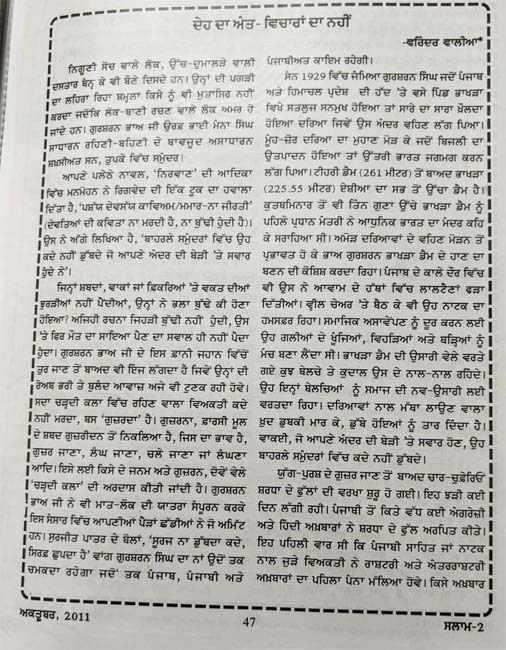 ਦੇਹ ਦਾ ਅੰਤ- ਵਿਚਾਰਾਂ ਦਾ ਨਹੀਂ
-ਵਰਿੰਦਰ ਵਾਲੀਆ*
ਨਿਗੂਣੀ ਸੋਚ ਵਾਲੇ ਲੋਕ, ਉੱਚ-ਦੁਮਾਲੜੇ ਵਾਲੀ
ਦਸਤਾਰ ਬੰਨ੍ਹ ਕੇ ਵੀ ਬੌਣੇ ਦਿਸਦੇ ਹਨ। ਉਨ੍ਹਾਂ ਦੀ ਪਗੜੀ
ਦਾ ਲਹਿਰਾ ਰਿਹਾ ਸ਼ਮੂਲਾ ਕਿਸੇ ਨੂੰ ਵੀ ਮੁਤਾਸਿਰ ਨਹੀਂ
ਕਰਦਾ ਜਦੋਂਕਿ ਲੋਕ-ਬਾਣੀ ਰਚਣ ਵਾਲੇ ਲੋਕ ਅਮਰ ਹੋ
ਜਾਂਦੇ ਹਨ। ਗੁਰਸ਼ਰਨ ਭਾਅ ਜੀ ਉਰਫ਼ ਭਾਈ ਮੰਨਾ ਸਿੰਘ
ਸਾਧਾਰਨ ਰਹਿਣੀ-ਬਹਿਣੀ ਦੇ ਬਾਵਜੂਦ ਅਸਾਧਾਰਨ
ਸ਼ਖ਼ਸੀਅਤ ਸਨ, ਤੁਪਕੇ ਵਿੱਚ ਸਮੁੰਦਰ!
ਆਪਣੇ ਪਲੇਠੇ ਨਾਵਲ, 'ਨਿਰਵਾਣ' ਦੀ ਆਦਿਕਾ
ਵਿੱਚ ਮਨਮੋਹਨ ਨੇ ਰਿਗਵੇਦ ਦੀ ਇੱਕ ਟੂਕ ਦਾ ਹਵਾਲਾ
ਦਿੱਤਾ ਹੈ, 'ਪਸ਼ੱਯ ਦੇਵਸੱਯ ਕਾਵਿਅਮ/ਮਮਾਰ-ਨਾ ਜੀਰਤੀ'
(ਦੇਵਤਿਆਂ ਦੀ ਕਵਿਤਾ ਨਾ ਮਰਦੀ ਹੈ, ਨਾ ਬੁੱਢੀ ਹੁੰਦੀ ਹੈ)।
ਉਸ ਨੇ ਅੱਗੇ ਲਿਖਿਆ ਹੈ, 'ਬਾਹਰਲੇ ਸਮੁੰਦਰਾਂ ਵਿੱਚ ਉਹ
ਕਦੇ ਨਹੀਂ ਡੁੱਬਦੇ ਜੋ ਆਪਣੇ ਅੰਦਰ ਦੀ ਬੇੜੀ 'ਤੇ ਸਵਾਰ
ਹੁੰਦੇ ਨੇ'।
ਜਿਨ੍ਹਾਂ ਸ਼ਬਦਾਂ, ਵਾਕਾਂ ਜਾਂ ਫ਼ਿਕਰਿਆਂ 'ਤੇ ਵਕਤ ਦੀਆਂ
ਝੁਰੜੀਆਂ ਨਹੀਂ ਪੈਂਦੀਆਂ, ਉਨ੍ਹਾਂ ਨੇ ਭਲਾ ਬੁੱਢੇ ਕੀ ਹੋਣਾ
ਹੋਇਆ? ਅਜਿਹੀ ਰਚਨਾ ਜਿਹੜੀ ਬੁੱਢੀ ਨਹੀਂ ਹੁੰਦੀ, ਉਸ
'ਤੇ ਫਿਰ ਮੌਤ ਦਾ ਸਾਇਆ ਪੈਣ ਦਾ ਸਵਾਲ ਹੀ ਨਹੀਂ ਪੈਦਾ
ਹੁੰਦਾ। ਗੁਰਸ਼ਰਨ ਭਾਅ ਜੀ ਦੇ ਇਸ ਫ਼ਾਨੀ ਜਹਾਨ ਵਿੱਚੋਂ
ਤੁਰ ਜਾਣ ਤੋਂ ਬਾਅਦ ਵੀ ਇੰਜ ਲਗਦਾ ਹੈ ਜਿਵੇਂ ਉਨ੍ਹਾਂ ਦੀ
ਰੋਅਬ ਭਰੀ ਤੇ ਬੁਲੰਦ ਆਵਾਜ਼ ਅਜੇ ਵੀ ਟੁਣਕ ਰਹੀ ਹੋਵੇ।
ਸਦਾ ਚੜ੍ਹਦੀ ਕਲਾ ਵਿੱਚ ਰਹਿਣ ਵਾਲਾ ਵਿਅਕਤੀ ਕਦੇ
ਨਹੀਂ ਮਰਦਾ, ਬਸ 'ਗੁਜ਼ਰਦਾ' ਹੈ। ਗੁਜ਼ਰਨਾ, ਫ਼ਾਰਸੀ ਮੂਲ
ਦੇ ਸ਼ਬਦ ਗੁਜ਼ਰੀਦਨ ਤੋਂ ਨਿਕਲਿਆ ਹੈ, ਜਿਸ ਦਾ ਭਾਵ ਹੈ,
ਗੁਜ਼ਰ ਜਾਣਾ, ਲੰਘ ਜਾਣਾ, ਚਲੇ ਜਾਣਾ ਜਾਂ ਲੰਘਣਾ
ਆਦਿ। ਇਸੇ ਲਈ ਕਿਸੇ ਦੇ ਜਨਮ ਅਤੇ ਗੁਜ਼ਰਨ, ਦੋਵੇਂ ਵੇਲੇ
'ਚੜ੍ਹਦੀ ਕਲਾ' ਦੀ ਅਰਦਾਸ ਕੀਤੀ ਜਾਂਦੀ ਹੈ। ਗੁਰਸ਼ਰਨ
ਭਾਅ ਜੀ ਨੇ ਵੀ ਮਾਤ-ਲੋਕ ਦੀ ਯਾਤਰਾ ਸੰਪੂਰਨ ਕਰਕੇ
ਇਸ ਸੰਸਾਰ ਵਿੱਚ ਆਪਣੀਆਂ ਪੈੜਾਂ ਛੱਡੀਆਂ ਨੇ ਜੋ ਅਮਿੱਟ
ਹਨ। ਸੁਰਜੀਤ ਪਾਤਰ ਦੇ ਬੋਲਾਂ, 'ਸੂਰਜ ਨਾ ਡੁੱਬਦਾ ਕਦੇ,
ਸਿਰਫ਼ ਛੁਪਦਾ ਹੈ' ਵਾਂਗ ਗੁਰਸ਼ਰਨ ਸਿੰਘ ਦਾ ਨਾਂ ਉਦੋਂ ਤਕ
ਚਮਕਦਾ ਰਹੇਗਾ ਜਦੋਂ ਤਕ ਪੰਜਾਬ, ਪੰਜਾਬੀ ਅਤੇ
ਪੰਜਾਬੀਅਤ ਕਾਇਮ ਰਹੇਗੀ।
ਸੰਨ 1929 ਵਿੱਚ ਜੰਮਿਆ ਗੁਰਸ਼ਰਨ ਸਿੰਘ ਜਦੋਂ ਪੰਜਾਬ
ਅਤੇ ਹਿਮਾਚਲ ਪ੍ਰਦੇਸ਼ ਦੀ ਹੱਦ 'ਤੇ ਵਸੇ ਪਿੰਡ ਭਾਖੜਾ
ਵਿਖੇ ਸਤਲੁਜ ਸਨਮੁਖ ਹੋਇਆ ਤਾਂ ਸਾਰੇ ਦਾ ਸਾਰਾ ਖ਼ੌਲਦਾ
ਹੋਇਆ ਦਰਿਆ ਜਿਵੇਂ ਉਸ ਅੰਦਰ ਵਹਿਣ ਲੱਗ ਪਿਆ।
ਮੂੰਹ-ਜ਼ੋਰ ਦਰਿਆ ਦਾ ਮੁਹਾਣ ਮੋੜ ਕੇ ਜਦੋਂ ਬਿਜਲੀ ਦਾ
ਉਤਪਾਦਨ ਹੋਇਆ ਤਾਂ ਉੱਤਰੀ ਭਾਰਤ ਜਗਮਗ ਕਰਨ
ਲੱਗ ਪਿਆ। ਟੀਹਰੀ ਡੈਮ (261 ਮੀਟਰ) ਤੋਂ ਬਾਅਦ ਭਾਖੜਾ
(225.55 ਮੀਟਰ) ਏਸ਼ੀਆ ਦਾ ਸਭ ਤੋਂ ਉੱਚਾ ਡੈਮ ਹੈ।
ਕੁਤਬਮਿਨਾਰ ਤੋਂ ਵੀ ਤਿੰਨ ਗੁਣਾ ਉੱਚੇ ਭਾਖੜਾ ਡੈਮ ਨੂੰ
ਪਹਿਲੇ ਪ੍ਰਧਾਨ ਮੰਤਰੀ ਨੇ ਆਧੁਨਿਕ ਭਾਰਤ ਦਾ ਮੰਦਰ ਕਹਿ
ਕੇ ਸਰਾਹਿਆ ਸੀ। ਅਮੋੜ ਦਰਿਆਵਾਂ ਦੇ ਵਹਿਣ ਮੋੜਨ ਤੋਂ
ਪ੍ਰਭਾਵਤ ਹੋ ਕੇ ਭਾਅ ਗੁਰਸ਼ਰਨ ਭਾਖੜਾ ਡੈਮ ਦੇ ਹਾਣ ਦਾ
ਬਣਨ ਦੀ ਕੋਸ਼ਿਸ਼ ਕਰਦਾ ਰਿਹਾ। ਪੰਜਾਬ ਦੇ ਕਾਲੇ ਦੌਰ ਵਿੱਚ
ਵੀ ਉਸ ਨੇ ਆਵਾਮ ਦੇ ਹੱਥਾਂ ਵਿੱਚ ਲਾਲਟੈਣਾਂ ਫੜਾ
ਦਿੱਤੀਆਂ। ਵ੍ਹੀਲ ਚੇਅਰ 'ਤੇ ਬੈਠ ਕੇ ਵੀ ਉਹ ਨਾਟਕ ਦਾ
ਹਮਸਫ਼ਰ ਰਿਹਾ। ਸਮਾਜਿਕ ਅਸਾਵੇਂਪਣ ਨੂੰ ਦੂਰ ਕਰਨ ਲਈ
ਉਹ ਗਲੀਆਂ ਦੇ ਖੂੰਜਿਆਂ, ਵਿਹੜਿਆਂ ਅਤੇ ਥੜ੍ਹਿਆਂ ਨੂੰ
ਮੰਚ ਬਣਾ ਲੈਂਦਾ ਸੀ। ਭਾਖੜਾ ਡੈਮ ਦੀ ਉਸਾਰੀ ਵੇਲੇ ਵਰਤੇ
ਗਏ ਕੁਝ ਬੇਲਚੇ ਤੇ ਕੁਦਾਲ ਉਸ ਦੇ ਨਾਲ-ਨਾਲ ਰਹਿੰਦੇ।
ਉਹ ਇਨ੍ਹਾਂ ਬੇਲਚਿਆਂ ਨੂੰ ਸਮਾਜ ਦੀ ਨਵ-ਉਸਾਰੀ ਲਈ
ਵਰਤਦਾ ਰਿਹਾ। ਦਰਿਆਵਾਂ ਨਾਲ ਮੱਥਾ ਲਾਉਣ ਵਾਲਾ
ਖ਼ੁਦ ਡੁਬਕੀ ਮਾਰ ਕੇ, ਡੁੱਬੇ ਹੋਇਆਂ ਨੂੰ ਤਾਰ ਦਿੰਦਾ ਹੈ।
ਵਾਕਈ, ਜੋ ਆਪਣੇ ਅੰਦਰ ਦੀ ਬੇੜੀ 'ਤੇ ਸਵਾਰ ਹੋਣ, ਉਹ
ਬਾਹਰਲੇ ਸਮੁੰਦਰਾਂ ਵਿੱਚ ਕਦੇ ਨਹੀਂ ਡੁੱਬਦੇ।
ਯੁੱਗ-ਪੁਰਸ਼ ਦੇ ਗੁਜ਼ਰ ਜਾਣ ਤੋਂ ਬਾਅਦ ਚਾਰ-ਚੁਫੇਰਿਓਂ
ਸ਼ਰਧਾ ਦੇ ਫੁੱਲਾਂ ਦੀ ਵਰਖਾ ਸ਼ੁਰੂ ਹੋ ਗਈ। ਇਹ ਝੜੀ ਕਈ
ਦਿਨ ਲੱਗੀ ਰਹੀ। ਪੰਜਾਬੀ ਤੋਂ ਕਿਤੇ ਵੱਧ ਕਈ ਅੰਗਰੇਜ਼ੀ
ਅਤੇ ਹਿੰਦੀ ਅਖ਼ਬਾਰਾਂ ਨੇ ਸ਼ਰਧਾ ਦੇ ਫੁੱਲ ਅਰਪਿਤ ਕੀਤੇ।
ਇਹ ਪਹਿਲੀ ਵਾਰ ਸੀ ਕਿ ਪੰਜਾਬੀ ਸਾਹਿਤ ਜਾਂ ਨਾਟਕ
ਨਾਲ ਜੁੜੇ ਵਿਅਕਤੀ ਨੇ ਰਾਸ਼ਟਰੀ ਅਤੇ ਅੰਤਰਰਾਸ਼ਟਰੀ
ਅਖ਼ਬਾਰਾਂ ਦਾ ਪਹਿਲਾ ਪੰਨਾ ਮੱਲਿਆ ਹੋਵੇ। ਕਿਸੇ ਅਖ਼ਬਾਰ
ਅਕਤੂਬਰ, 2011
47
ਸਲਾਮ-2